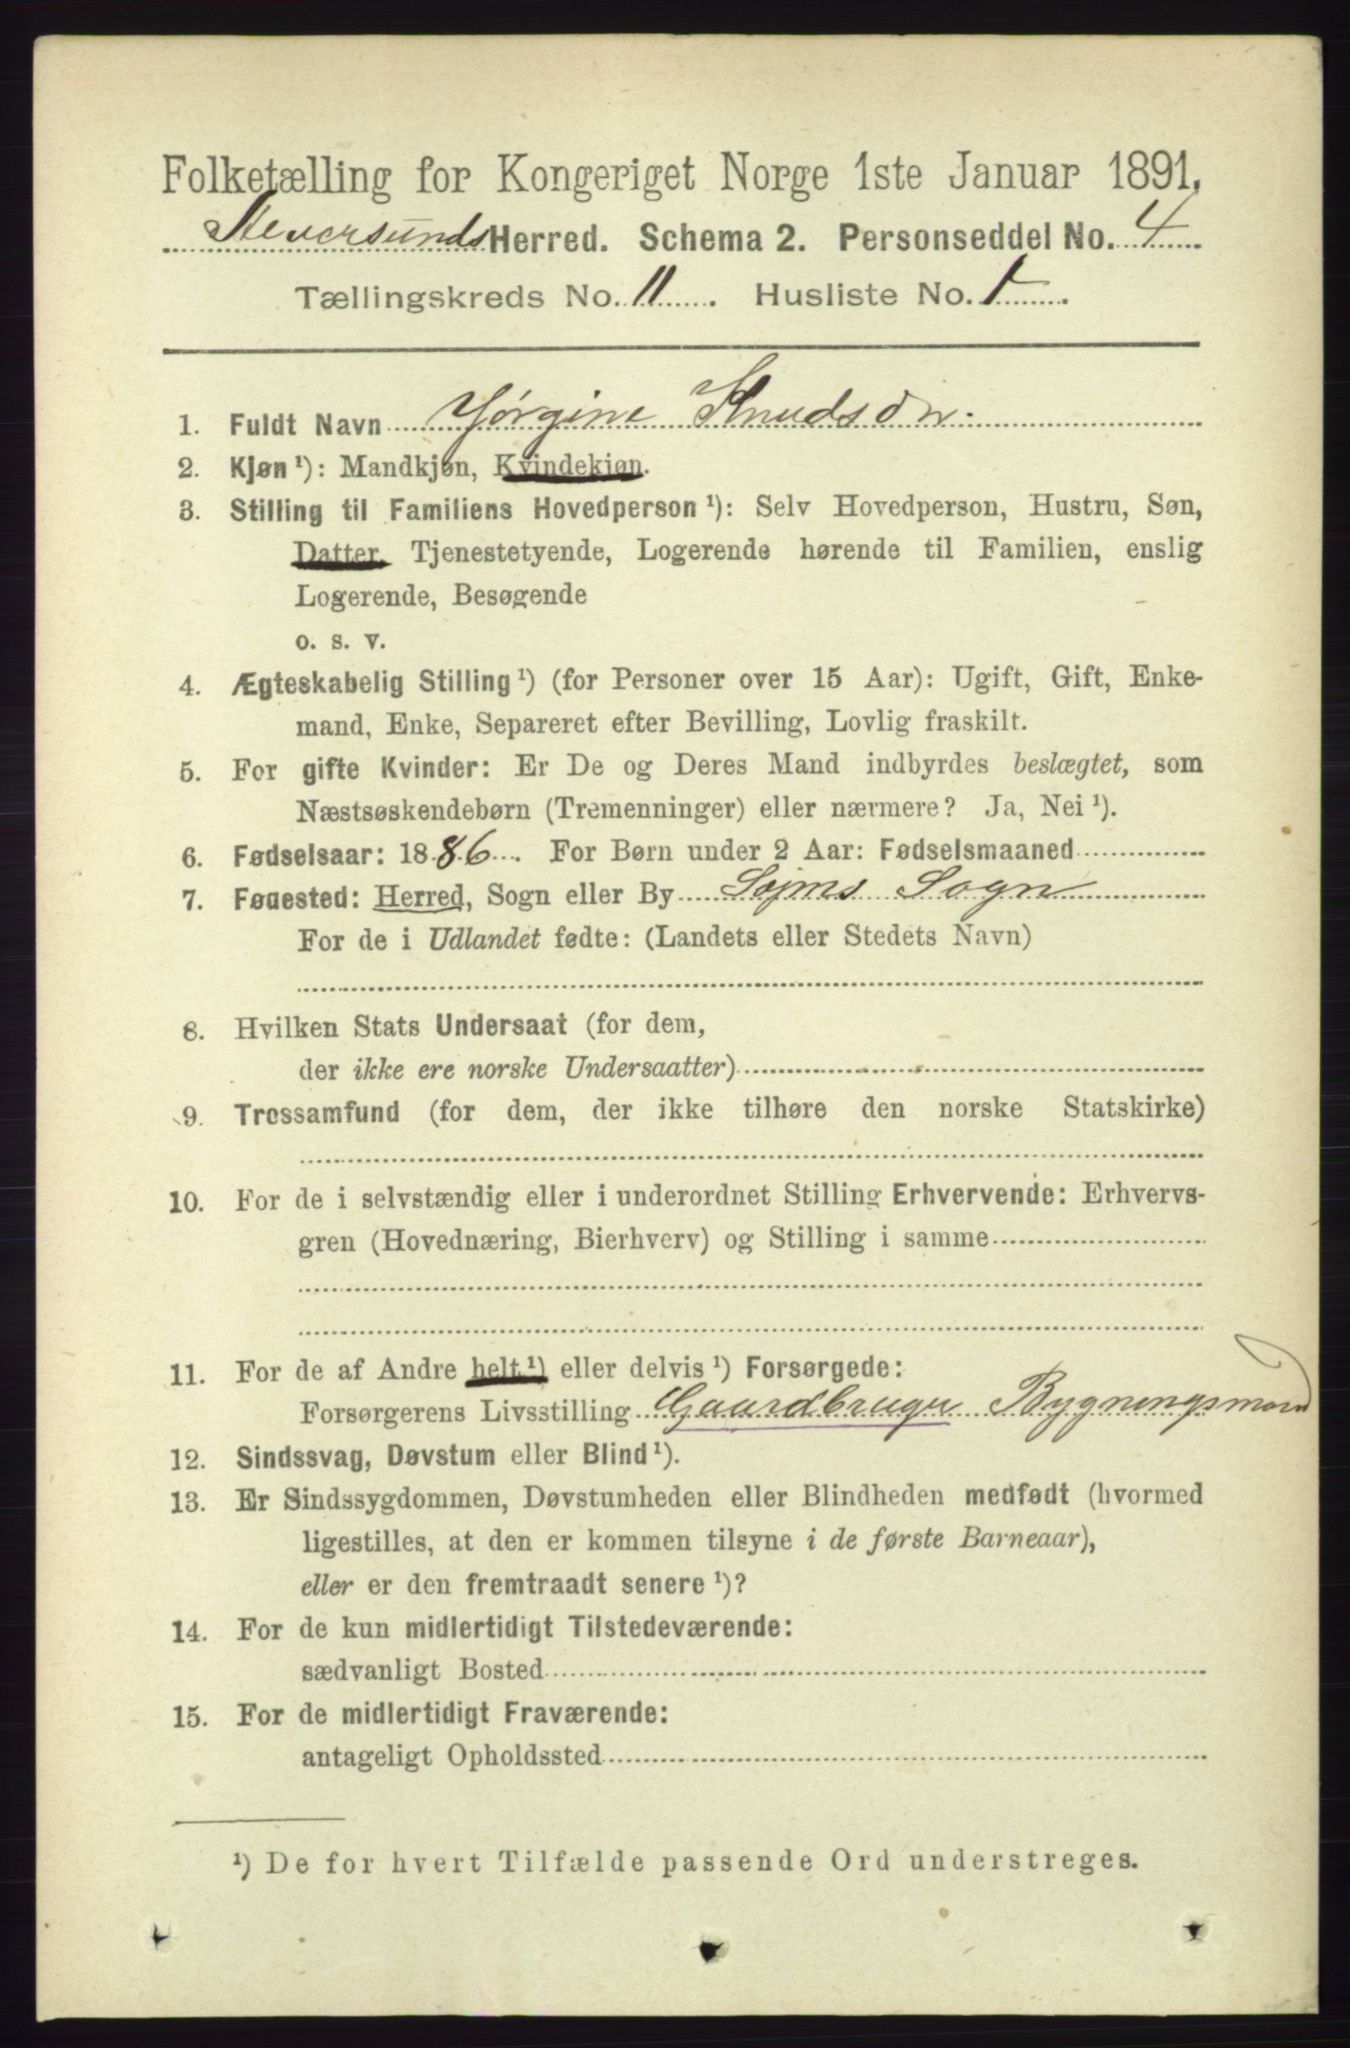 Folketælling for Kongeriget Norge 1ste Januar 1891.
Steversunds Herred. Schema 2. Personseddel No. 4
Tællingskreds No. 11. Husliste No. 1.
1. Fuldt Navn Jørgine Knudsdn.
2. Kjøn ¹): Mandkjøn, Kvindekjøn.
3. Stilling til Familiens Hovedperson ¹): Selv Hovedperson, Hustru, Søn,
Datter, Tjenestetyende, Logerende hørende til Familien, enslig
Logerende, Besøgende
o. s. v.
4. Ægteskabelig Stilling ¹) (for Personer over 15 Aar): Ugift, Gift, Enke-
mand, Enke, Separeret efter Bevilling, Lovlig fraskilt.
5. For gifte Kvinder: Er De og Deres Mand indbyrdes beslægtet, som
Næstsøskendebørn (Tremenninger) eller nærmere? Ja, Nei ¹).
6. Fødselsaar: 1886. For Børn under 2 Aar: Fødselsmaaned
7. Fødested: Herred, Sogn eller By Søjms Sogn
For de i Udlandet fødte: (Landets eller Stedets Navn)
8. Hvilken Stats Undersaat (for dem,
der ikke ere norske Undersaatter)
9. Trossamfund (for dem, der ikke tilhøre den norske Statskirke)
10. For de i selvstændig eller i underordnet Stilling Erhvervende: Erhvervs-
gren (Hovednæring, Bierhverv) og Stilling i samme
11. For de af Andre helt ¹) eller delvis ¹) Forsørgede:
Forsørgerens Livsstilling Gaardbruger Bygningsmand
12. Sindssvag, Døvstum eller Blind ¹).
13. Er Sindssygdommen, Døvstumheden eller Blindheden medfødt (hvormed
ligestilles, at den er kommen tilsyne i de første Barneaar),
eller er den fremtraadt senere ¹)?
14. For de kun midlertidigt Tilstedeværende:
sædvanligt Bosted
15. For de midlertidigt Fraværende:
antageligt Opholdssted
¹) De for hvert Tilfælde passende Ord understreges.